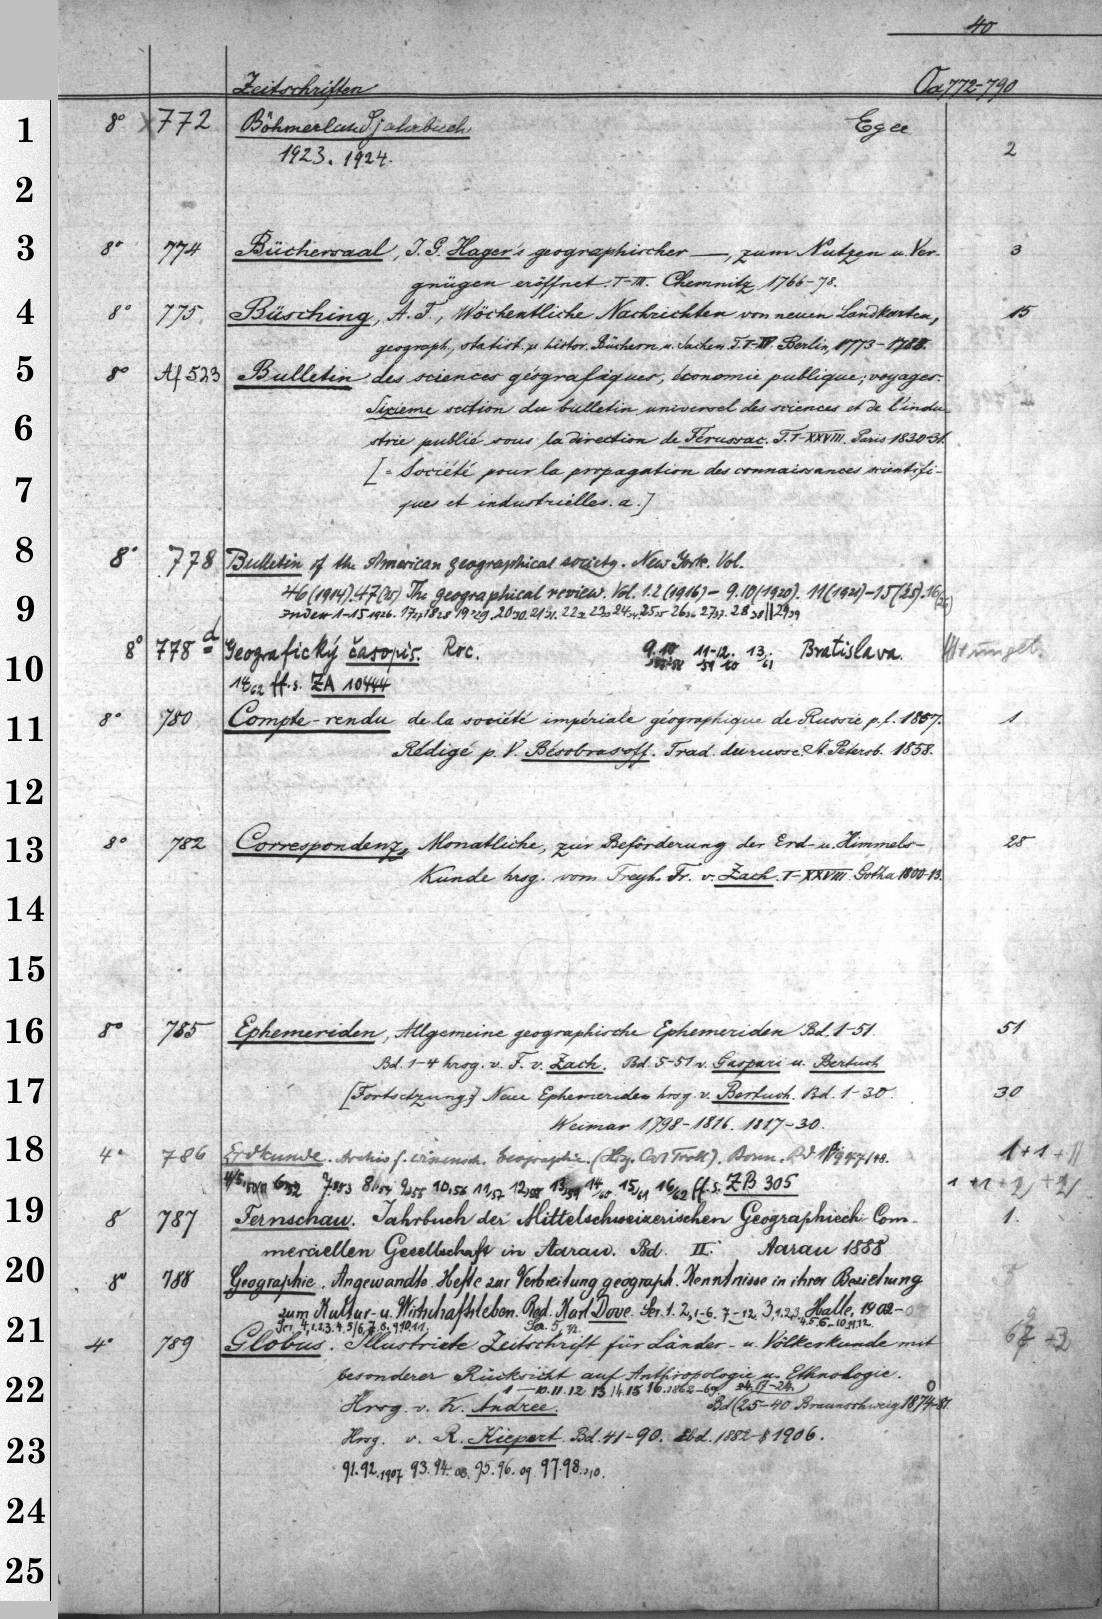 40
Zeitschriften Oa 772-790
1 8° 772 Böhmerland Jahrbuch Eger
1923. 1924. 2
2
3 8° 774 Büchersaal, J. G. Hager's geographischer —, zum Nutzen u. Ver- 3
gnügen eröffnet. I-III. Chemnitz 1766-78.
4 8° 775 Büsching, A. F., Wöchentliche Nachrichten von neuen Landkarten, 15
geograph., statist. u. histor. Büchern u. Sachen. Berlin, 1773-1788.
5 8° Af 523 Bulletin des sciences géografiques, économie publique; voyages.
6 Sixieme section du bulletin universel des sciences et de l'indu-
strie publié sous la direction de Férussac. T. I-XXVIII. Paris 1830-31.
7 [= Société pour la propagation des connaissances scientifi-
ques et industrielles. a.]
8 8° 778 Bulletin of the American geographical society. New York. Vol.
46 (1914). 47 (15) The geographical review. Vol. 1.2 (1916) - 9.10 (1920). 11 (1921) - 15 (25). 16 (26)
9 Index 1-15 1926.
10 8° 778 d Geografický časopis. Roc. 9.10 11-12. 13. Bratislava.
14/62 ff. s. ZA 10444
11 8° 780 Compte-rendu de la société impériale géographique de Russie p. l. 1857. 1
Rédigé p. V. Bésobrasoff. Trad. du russe. St. Petersb. 1858.
12
13 8° 782 Correspondenz, Monatliche, zur Beförderung der Erd- u. Himmels- 28
Kunde hrsg. vom Freyh. Fr. v. Zach. I-XXVIII. Gotha 1800-13.
14
15
16 8° 785 Ephemeriden, Allgemeine geographische Ephemeriden Bd. 1-51. 51
Bd. 1-4 hrsg. v. F. v. Zach. Bd. 5-51 v. Gaspari u. Bertuch
17 [Fortsetzung:] Neue Ephemeriden hrsg. v. Bertuch. Bd. 1-30. 30
Weimar 1798-1816. 1817-30.
18 4° 786 Erdkunde. Archiv f. wissensch. Geographie. (Hrsg. Carl Troll). Bonn. Bd 1 1947/48. 1+1+
16/62 ff. s. ZB 305
19 8° 787 Fernschau. Jahrbuch der Mittelschweizerischen Geographisch Com- 1.
merciellen Gesellschaft in Aarau. Bd. II. Aarau 1888
20 8° 788 Geographie. Angewandte. Hefte zur Verbreitung geograph. Kenntnisse in ihrer Beziehung
zum Kultur- u. Wirtschaftsleben. Red. Karl Dove. Ser. 1. 2, 1-6. 7-12. 3, 1.2.3. Halle. 1902-
21 4° 789 Globus. Illustrirte Zeitschrift für Länder- u. Völkerkunde mit
22 besonderer Rücksicht auf Anthropologie u. Ethnologie.
1-10. 11. 12 13 14. 15 16. 1862-69
Hrsg. v. K. Andree. Bd (25-40 Braunschweig 1874-81.
23 Hrsg. v. R. Kiepert. Bd. 41-90. Ebd. 1882-1906.
91. 92. 1907 93. 94. 08. 95. 96. 09 97. 98. 10.
24
25